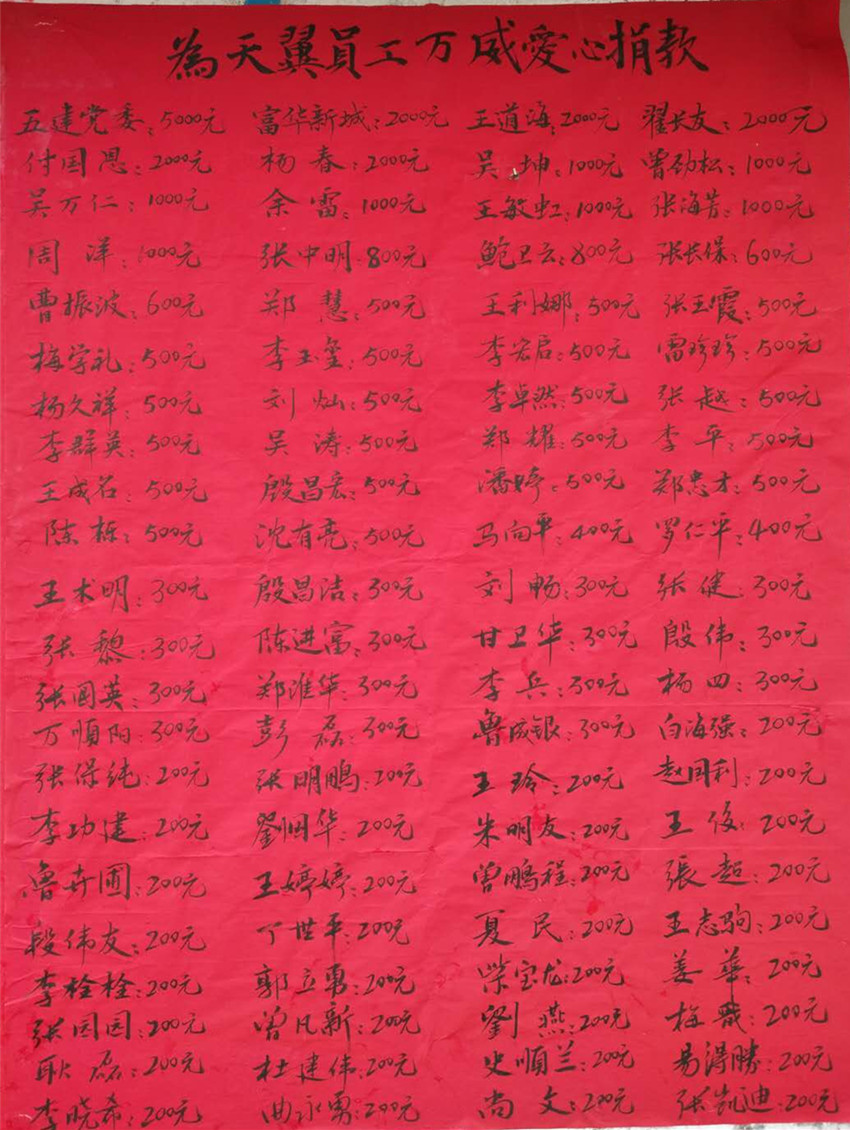 為天翼員工万威愛心捐款
五建党委:5000元 富华新城:2000元 王道海:2000元 翟长友:2000元
付国恩:2000元 杨春:2000元 吴坤:1000元 曾劲松:1000元
吴万仁:1000元 余雷:1000元 王敏虹:1000元 张海芳:1000元
周洋:1000元 张中明:800元 鲍卫云:800元 张长保:600元
曹振波:600元 郑慧:500元 王利娜:500元 张玉霞:500元
梅学礼:500元 李玉玺:500元 李宏启:500元 雷珍珍:500元
杨久祥:500元 刘灿:500元 李卓然:500元 张越:500元
李群英:500元 吴涛:500元 郑耀:500元 李平:500元
王成名:500元 殷昌宏:500元 潘婷:500元 郑忠才:500元
陈栎:500元 沈有亮:500元 马向平:400元 罗仁平:400元
王术明:300元 殷昌洁:300元 刘畅:300元 张健:300元
张黎:300元 陈进富:300元 甘卫华:300元 殷伟:300元
张国英:300元 郑淮华:300元 李兵:300元 杨四:300元
万順阳:300元 彭磊:300元 魯成银:300元 白海强:200元
张保纯:200元 张明鹏:200元 王玲:200元 赵国利:200元
李功建:200元 劉国华:200元 朱明友:200元 王俊:200元
魯卉圃:200元 王婷婷:200元 曾鹏程:200元 張超:200元
段伟友:200元 丁世平:200元 夏民:200元 王志驹:200元
李栓栓:200元 郭立勇:200元 柴宝龙:200元 姜華:200元
张园园:200元 曾凡新:200元 劉燕:200元 梅:200元
耿磊:200元 杜建伟:200元 史順兰:200元 易得勝:200元
李晓希:200元 曲永勇:200元 尚文:200元 张凯迪:200元